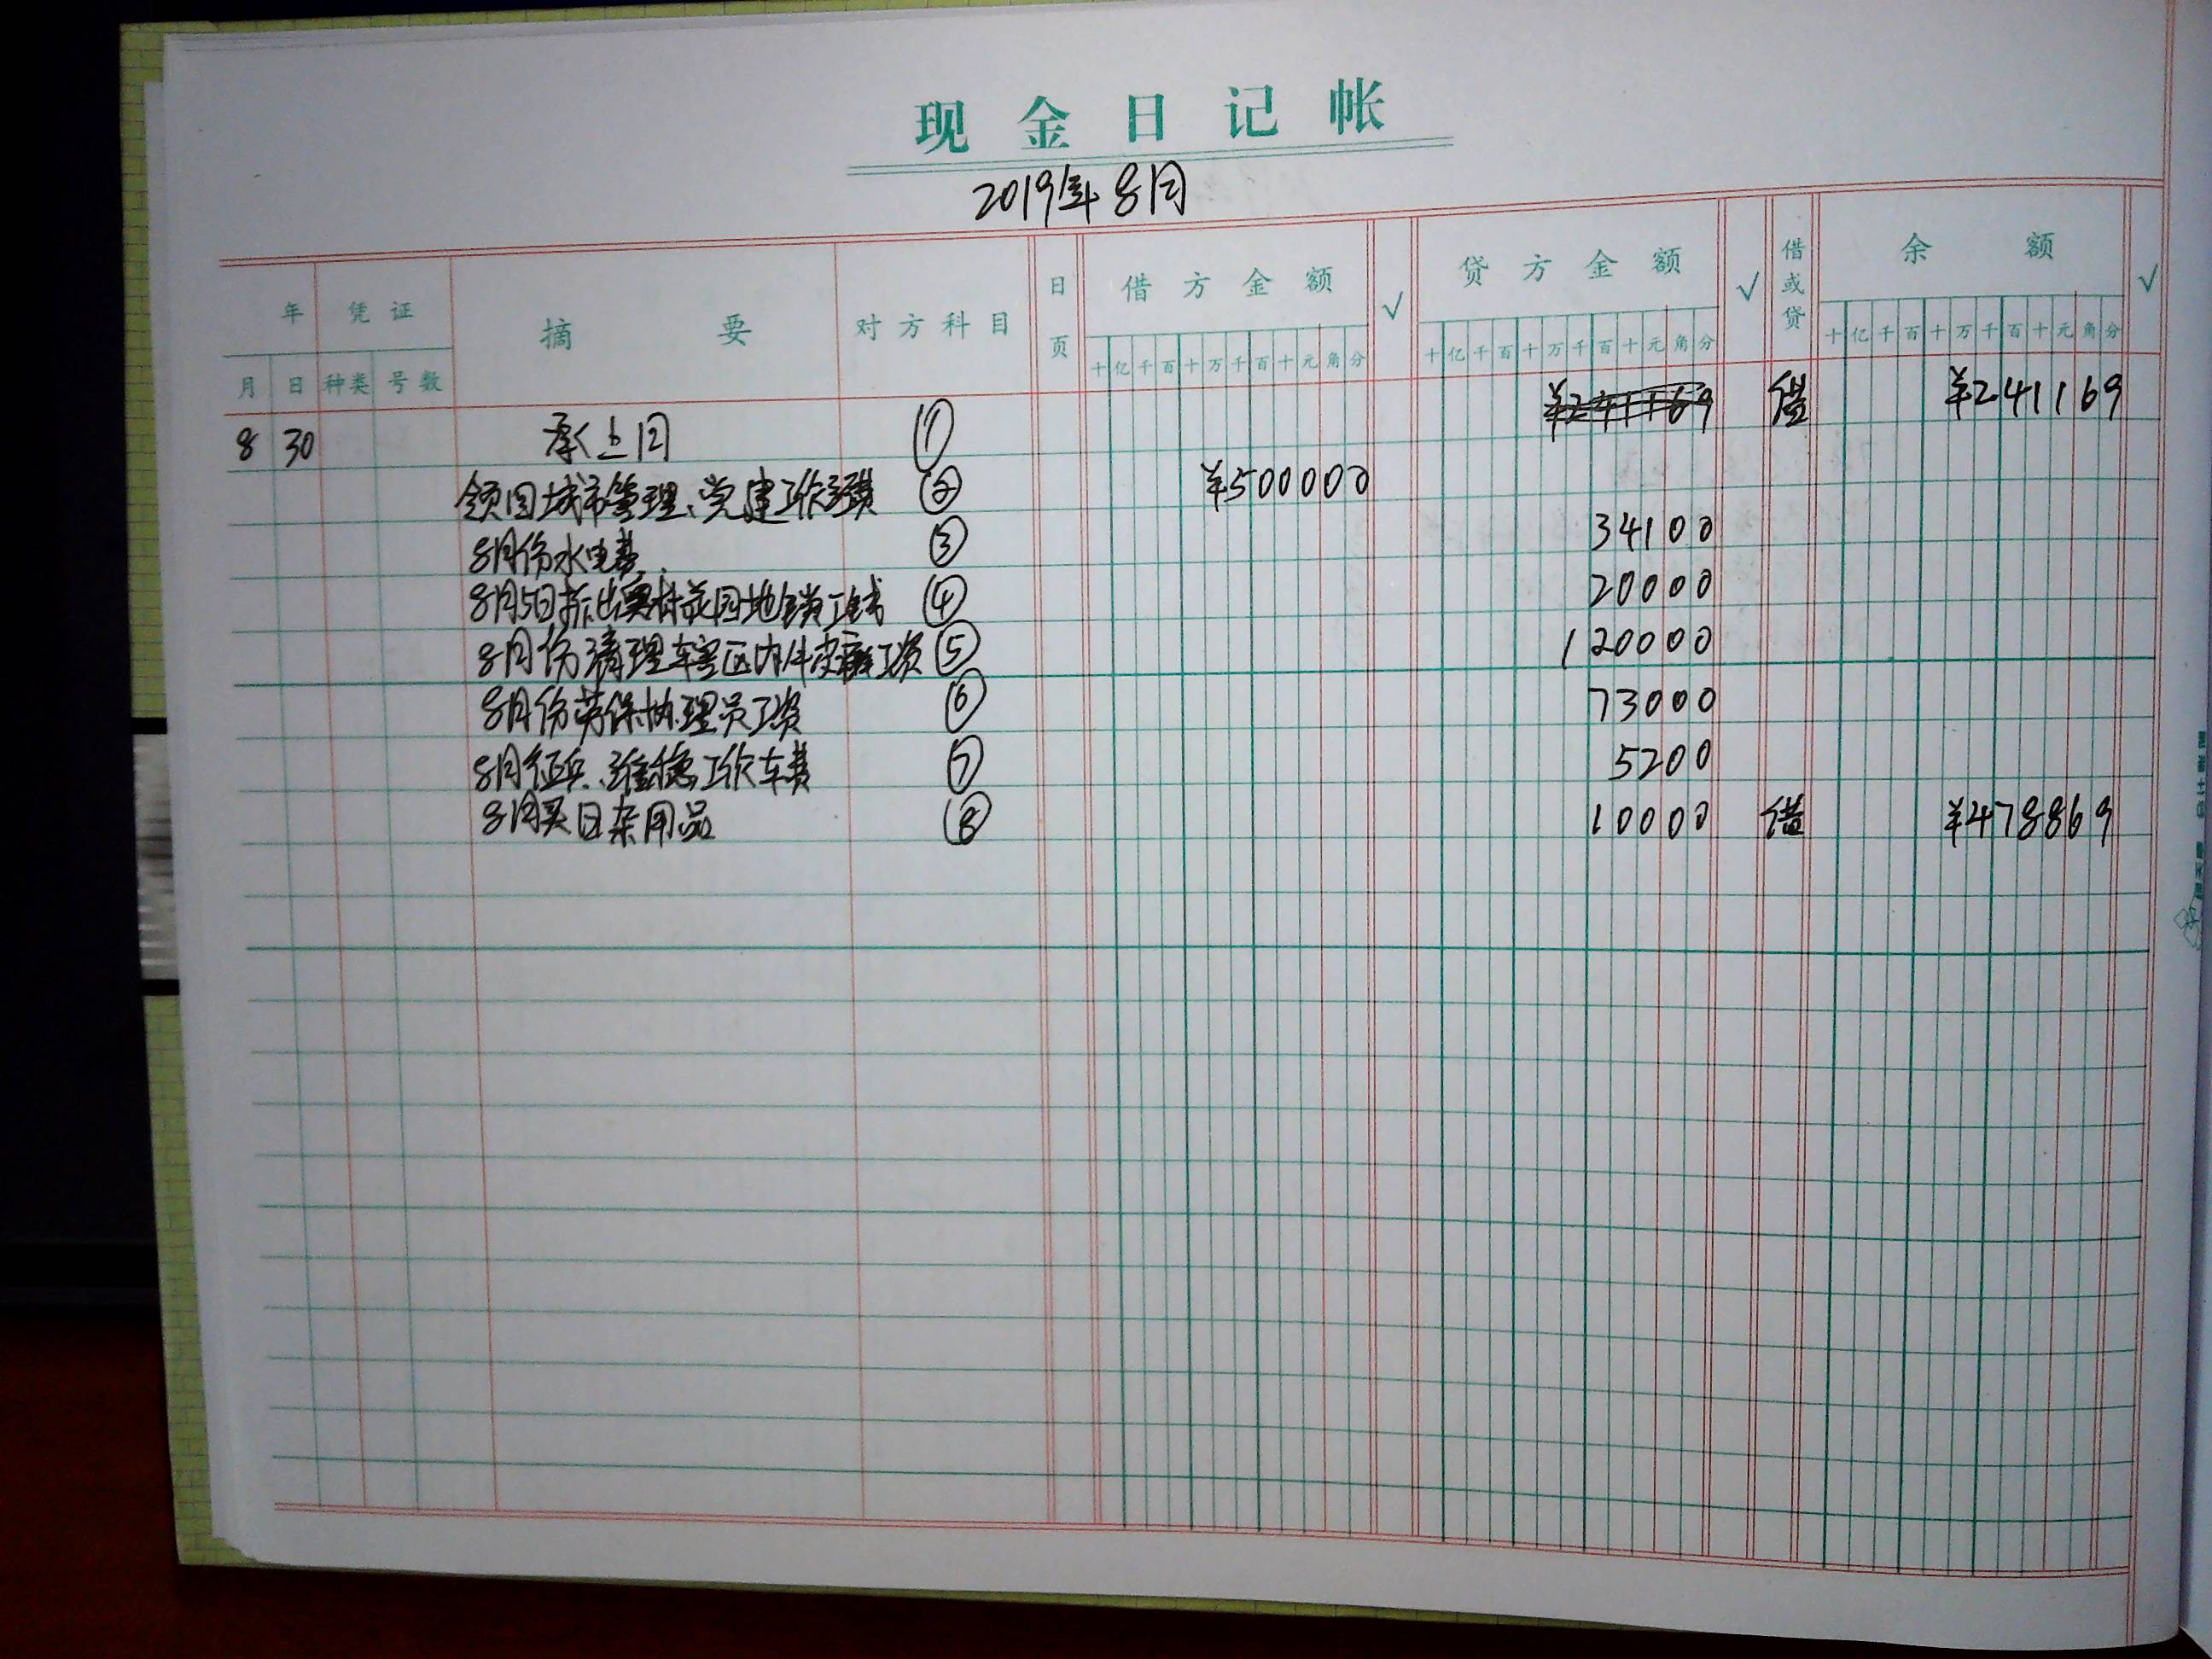 现金日记帐
2019年8月
年 凭证 摘要 对方科目 日页 借方金额 √ 贷方金额 √ 借或贷 余额 √
月 日 种类 号数 十亿千百十万千百十元角分 十亿千百十万千百十元角分 十亿千百十万千百十元角分
8 30 承上月 ① 借 ¥241169
领回城市管理、党建工作 ② ¥500000
8月份水电费 ③ 34100
8月5日拆出奥林花园地锁工钱 ④ 20000
8月份清理辖区内牛皮癣工资 ⑤ 120000
8月份劳保协理员工资 ⑥ 73000
8月征兵、维稳工作车费 ⑦ 5200
8月买日杂用品 ⑧ 10000 借 ¥478869